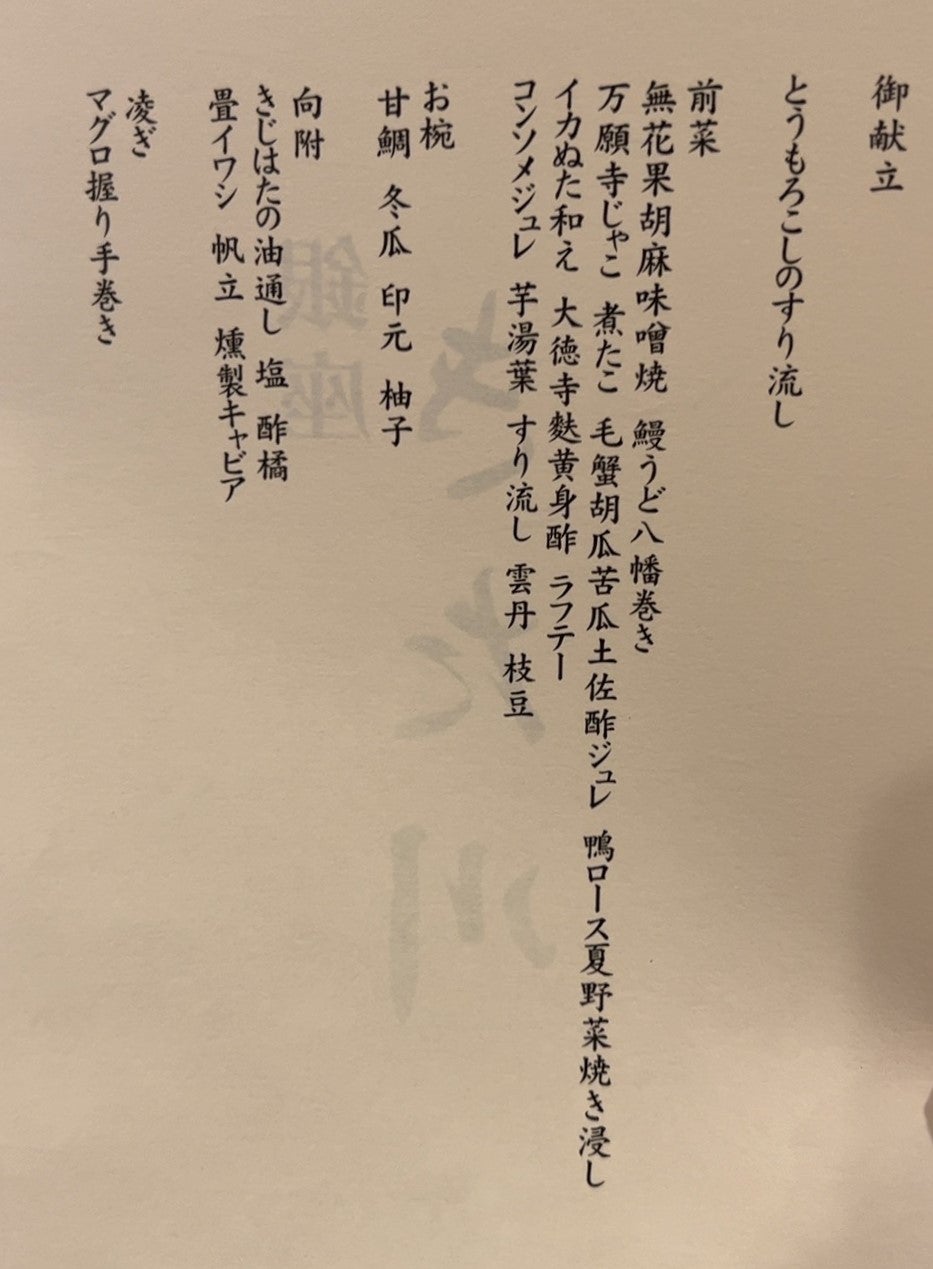 御献立
とうもろこしのすり流し
前菜
無花果胡麻味噌焼 鰻うど八幡巻き
万願寺じゃこ 煮たこ 毛蟹胡瓜苦瓜土佐酢ジュレ 鴨ロース夏野菜焼き浸し
イカぬた和え 大徳寺麩黄身酢 ラフテー
コンソメジュレ 芋湯葉 すり流し 雲丹 枝豆
お椀
甘鯛 冬瓜 印元 柚子
向附
きじはたの油通し 塩 酢橘
畳イワシ 帆立 燻製キャビア
凌ぎ
マグロ握り手巻き
銀座
きた川